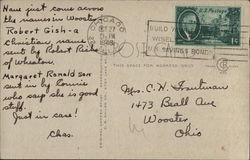 Have just come across
the names in Wooster
Robert Gish - a
Christian name
sent by Robert Rickes
of Wheaton.
Margaret Ronald son
sent in by Connie
who says she is good
stuff.
Just in case!
Chas.
CHICAGO
OCT 27
BUILD
U.S. SAVINGS BONDS
U.S. Postage
1¢
POST
Mrs. C. H. Troutman
1473 Beall Ave
Wooster
Ohio